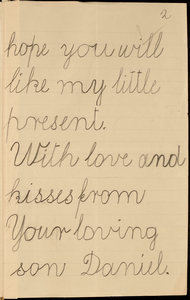 2
hope you will
like my little
present.
With love and
kisses from
Your loving
son Daniel.